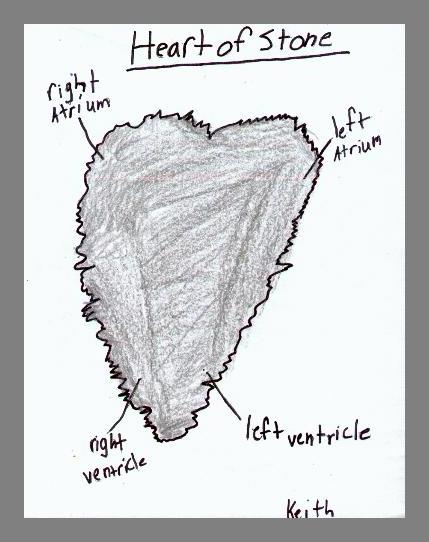 Heart of Stone
right
Atrium
left
Atrium
right
ventricle
left ventricle
Keith